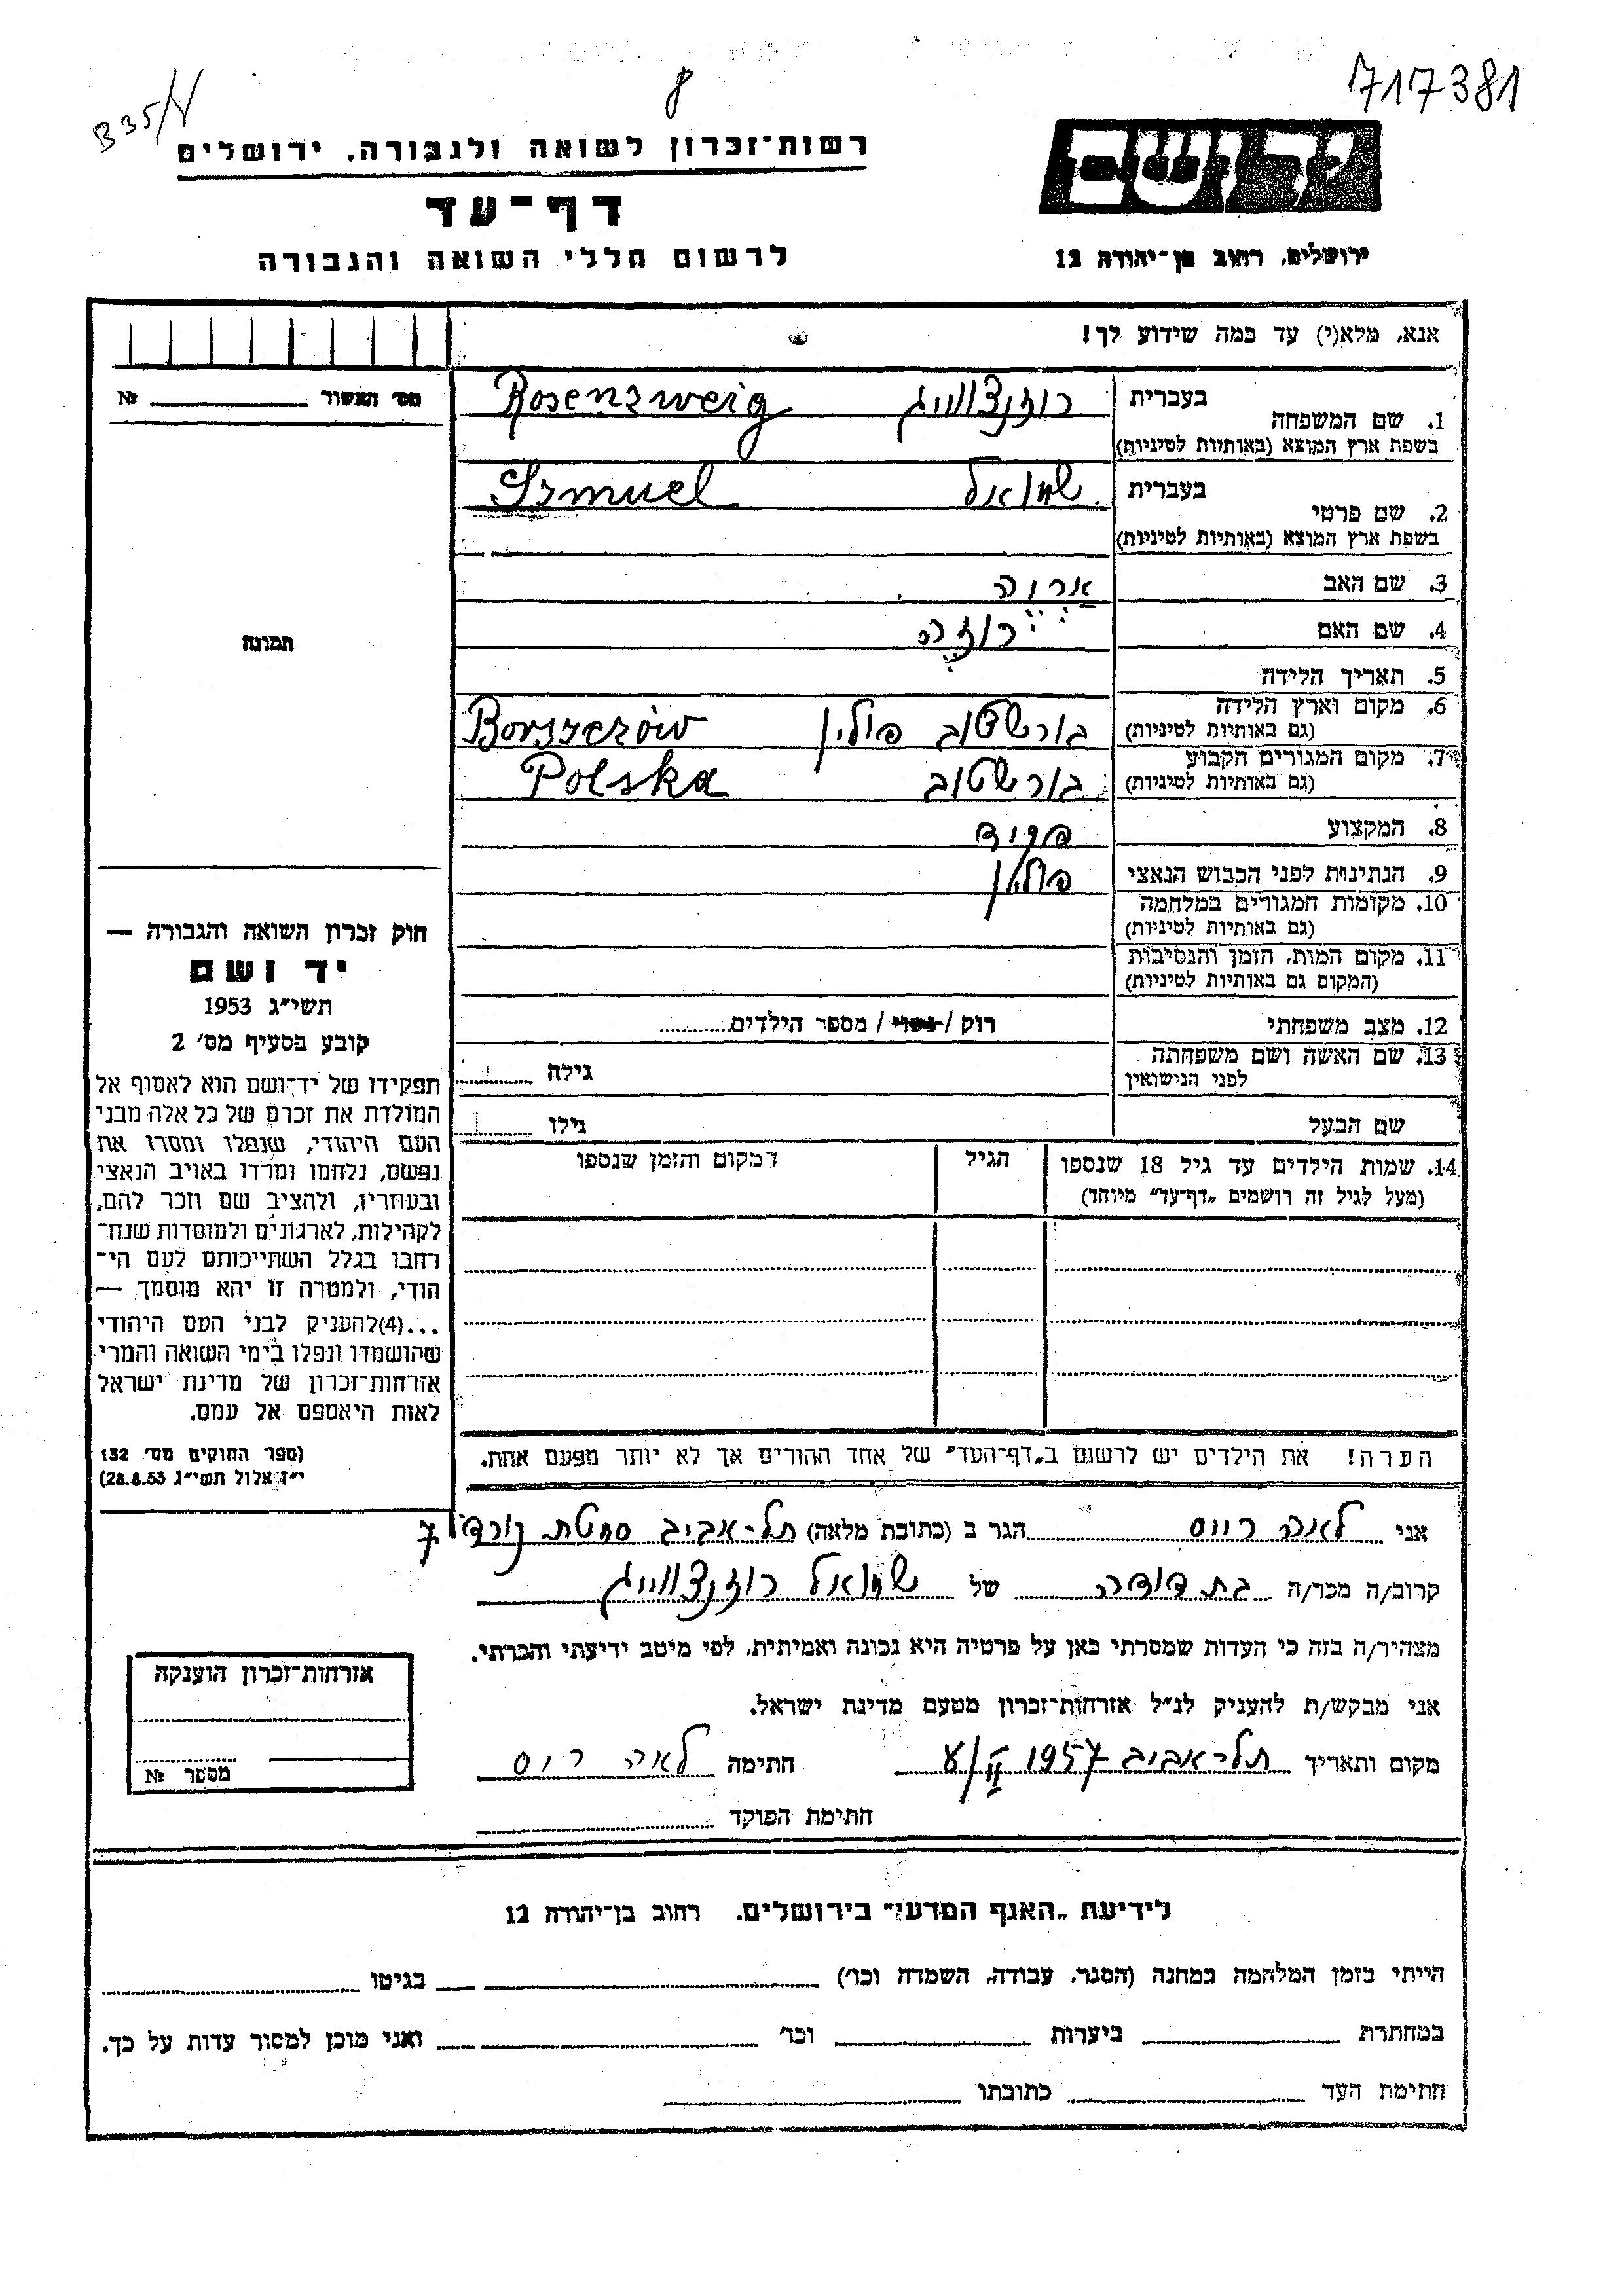 717381
8
B35/V
יד ושם
רשות־זכרון לשואה ולגבורה, ירושלים
דף־עד
לרשום חללי השואה והגבורה
ירושלים, רחוב בן־יהודה 12
אנא, מלא(י) עד כמה שידוע לך!
מס׳ האשור № 
1. שם המשפחה בעברית רוזנצווייג Rosenzweig
בשפת ארץ המוצא (באותיות לטיניות)
2. שם פרטי בעברית שמואל Szmuel
בשפת ארץ המוצא (באותיות לטיניות)
3. שם האב
4. שם האם רוזה
5. תאריך הלידה
6. מקום וארץ הלידה בורשטוב פולין Borszczów
(גם באותיות לטיניות)
7. מקום המגורים הקבוע בורשטוב Polska
(גם באותיות לטיניות)
8. המקצוע פקיד
9. הנתינות לפני הכבוש הנאצי פולין
10. מקומות המגורים במלחמה
(גם באותיות לטיניות)
11. מקום המות, הזמן והנסיבות
(המקום גם באותיות לטיניות)
12. מצב משפחתי רוק / נשוי / מספר הילדים
13. שם האשה ושם משפחתה גילה
לפני הנישואין
שם הבעל גילו
14. שמות הילדים עד גיל 18 שנספו הגיל המקום והזמן שנספו
(מעל לגיל זה רושמים „דף־עד״ מיוחד)
הערה! את הילדים יש לרשום ב„דף־העד״ של אחד ההורים אך לא יותר מפעם אחת.
תמונה
חוק זכרון השואה והגבורה —
יד ושם
תשי״ג 1953
קובע בסעיף מס׳ 2
תפקידו של יד־ושם הוא לאסוף אל
המולדת את זכרם של כל אלה מבני
העם היהודי, שנפלו ומסרו את
נפשם, נלחמו ומרדו באויב הנאצי
ובעוזריו, ולהציב שם וזכר להם,
לקהילות, לארגונים ולמוסדות שנח־
רחבו בגלל השתייכותם לעם הי־
הודי, ולמטרה זו יהא מוסמך —
...(4)להעניק לבני העם היהודי
שהושמדו ונפלו בימי השואה והמרי
אזרחות־זכרון של מדינת ישראל
לאות היאספם אל עמם.
(ספר החוקים מס׳ 132
י״ז אלול תשי״ג 28.8.53)
אני לאה רייס הגר ב (כתובת מלאה) תל-אביב סמטת נורדוי 7
קרוב/ה מכר/ה בת דודה של שמואל רוזנצווייג
מצהיר/ה בזה כי העדות שמסרתי כאן על פרטיה היא נכונה ואמיתית, לפי מיטב ידיעתי והכרתי.
אני מבקש/ת להעניק לנ״ל אזרחות־זכרון מטעם מדינת ישראל.
מקום ותאריך תל-אביב 1957 חתימה לאה רייס
חתימת הפוקד
אזרחות־זכרון הוענקה
מספר №
לידיעת „האגף המדעי״ בירושלים, רחוב בן־יהודה 12
הייתי בזמן המלחמה במחנה (הסגר, עבודה, השמדה וכו׳) בגיטו
במחתרת ביערות וכו׳ ואני מוכן למסור עדות על כך.
חתימת העד כתובתו